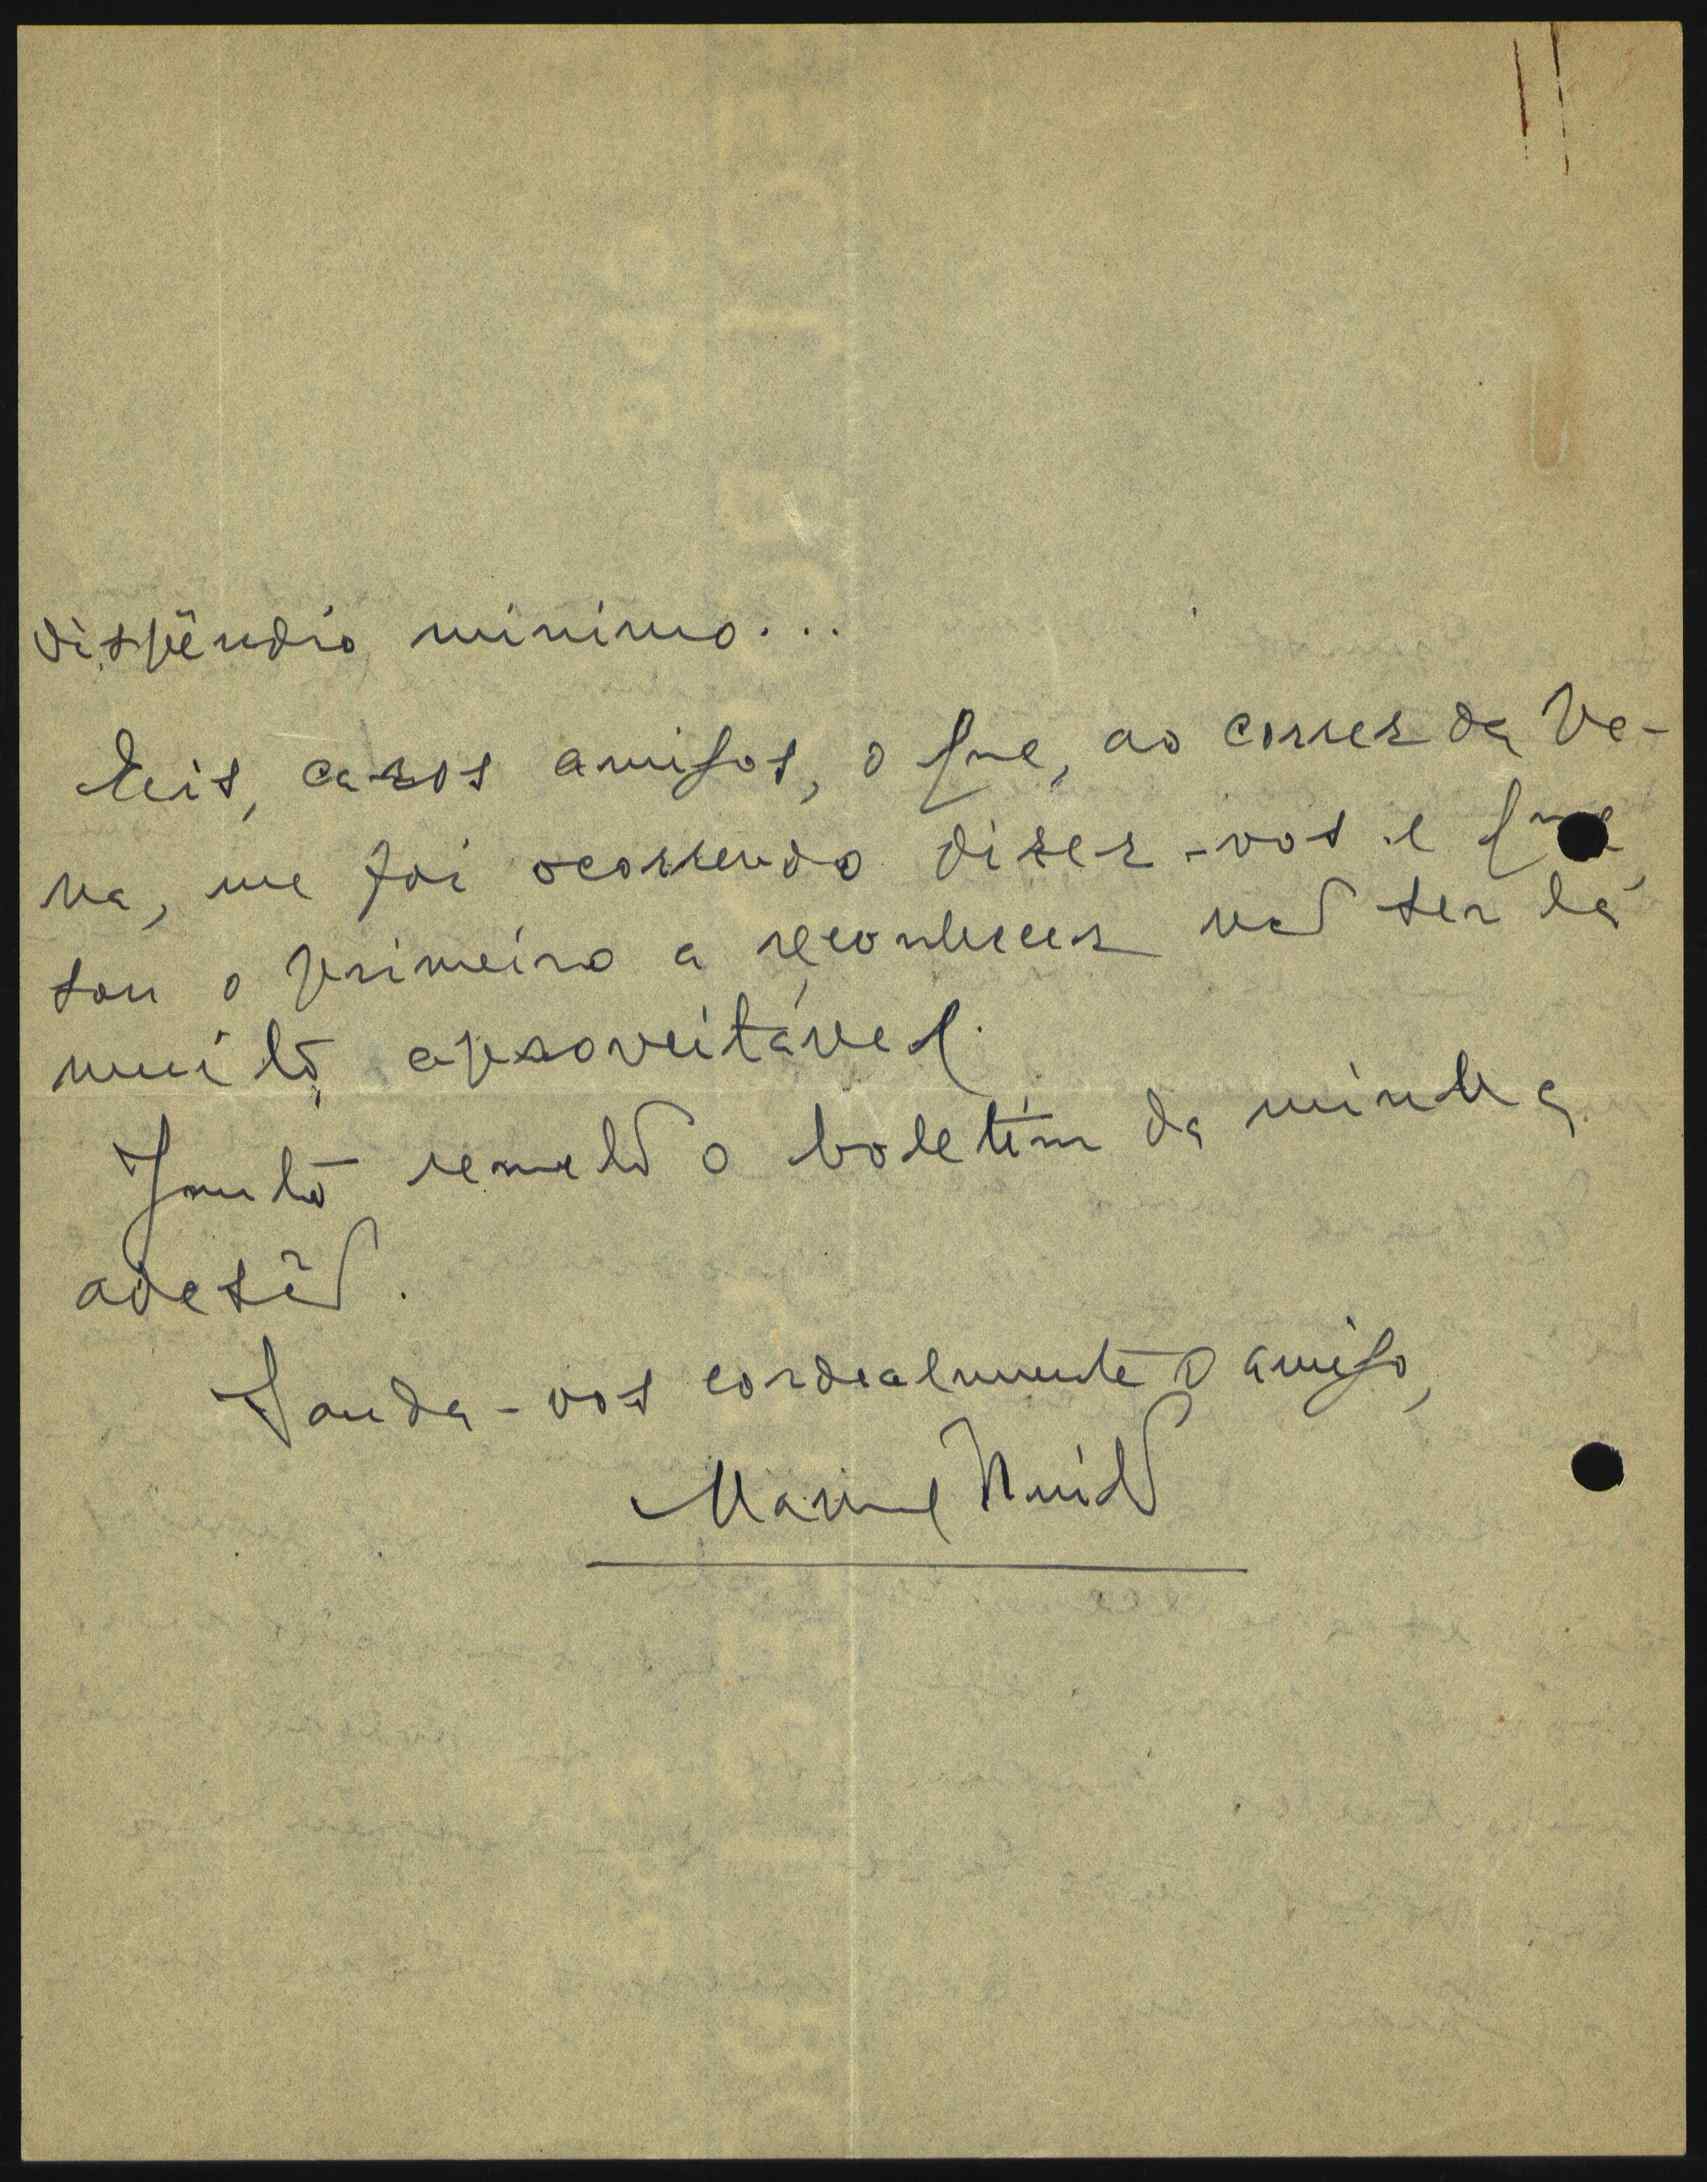 dispêndio minimo...
Eeis, caros amigos, o que, ao correr da pe-
na, me foi ocorrendo dizer-vos e que,
sou o primeiro a reconhecer não ser lá
muito aproveitável.
Junto remeto o boletim da minha
adesão.
Sauda-vos cordealmente o amigo,
Manuel